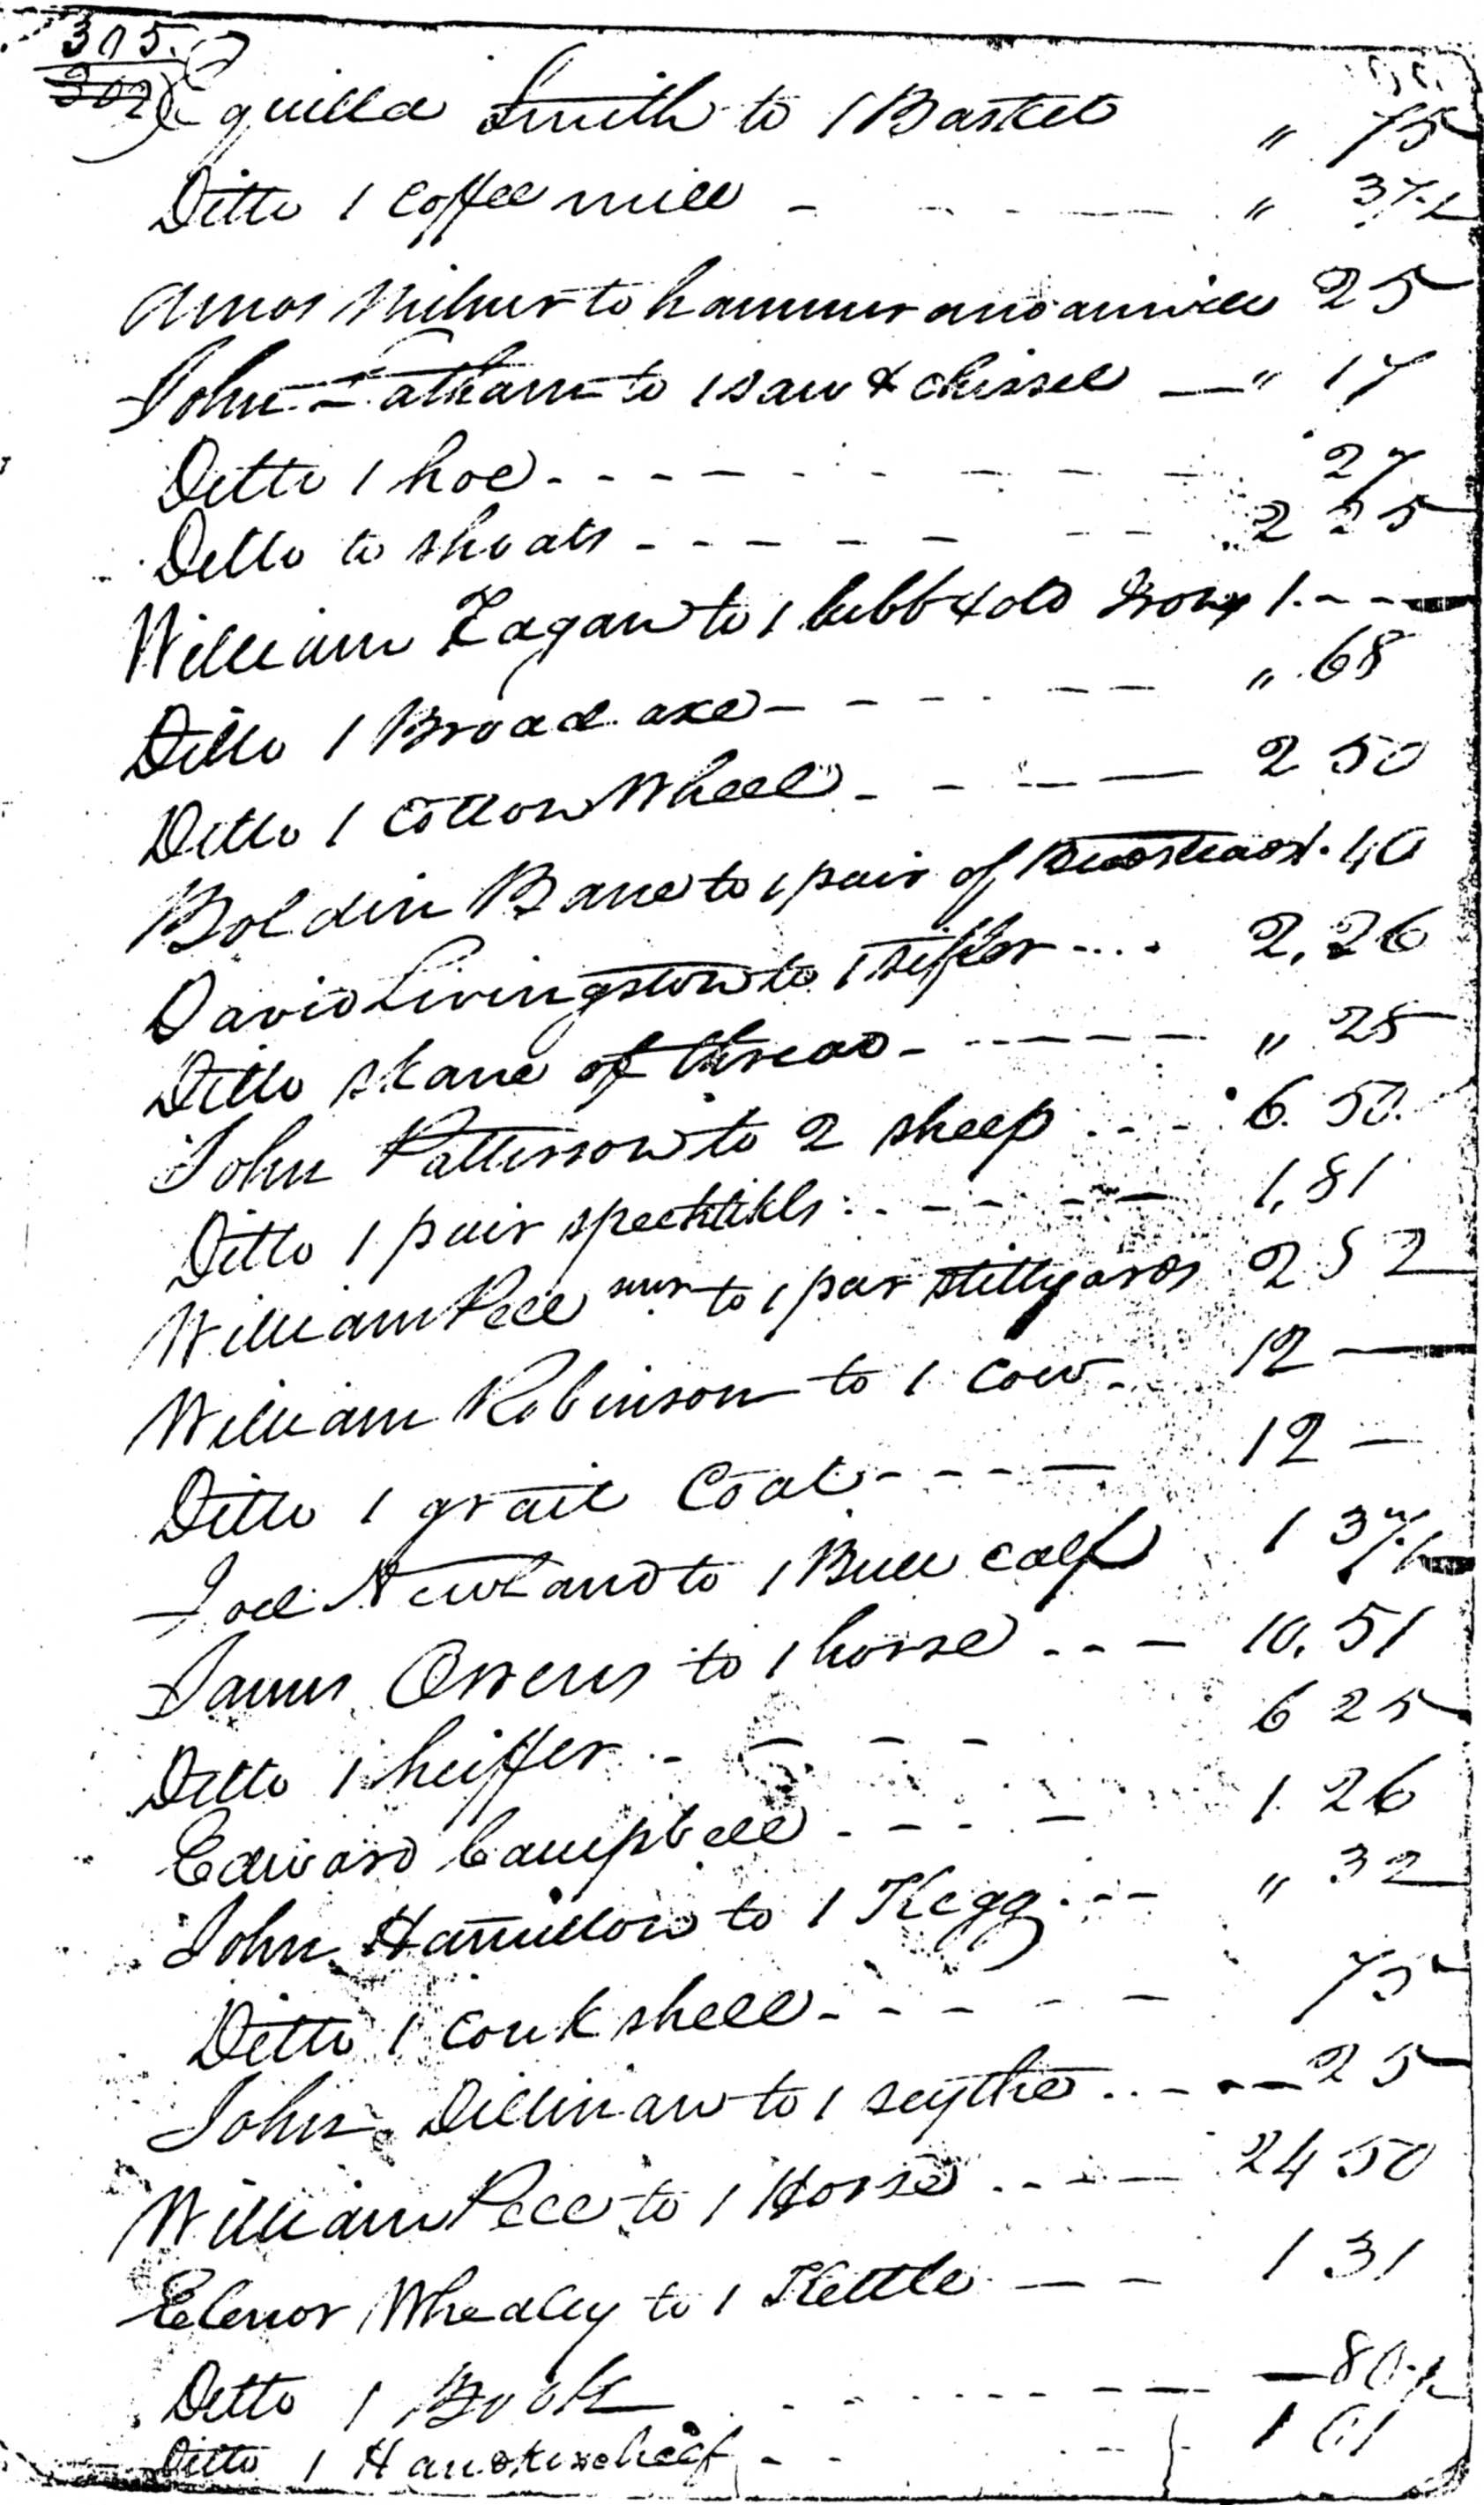 305
202
Equilla Smith to 1 Basket " 75
Ditto 1 Coffee mill - - - - " 37½
Amos Milner to hammer and anvill 25
John Latham to 1 saw & chissel - " 17
Ditto 1 hoe - - - - - - - - 27
Ditto to shoats - - - - - - - 2 25
William Fagan to 1 tubb & old Iron 1. - -
Ditto 1 Broad axe - - - - - - " 68
Ditto 1 Cotton Wheel - - - - 2 50
Boldin Bane to 1 pair of Bedsteads . 40
David Livingston to 1 sifter - - - . 2.26
Ditto skane of thread - - - - - " 25
John Patterson to 2 sheep - - - 6.50
Ditto 1 pair specktikls - - - - - 1.81
William Peel to 1 par stillyards 2 52
William Robinson to 1 cow - 12 -
Ditto 1 grait Coat - - - - 12 -
Joel Newland to 1 Bull calf 1 37½
James Owens to 1 horse - - - 10.51
Ditto 1 heiffer - - - - 6 25
Edward Campbell - - - - 1 26
John Hamilton to 1 Kegg - - - " 32
Ditto 1 conk shell - - - - - 75
John Dillinaw to 1 scythe - - - - 25
William Peel to 1 Horse - - - - 24 50
Elenor Whealey to 1 Kettle - - 1 31
Ditto 1 Book - - - - - - - 80½
Ditto 1 Handkercheif - - - - 1 01